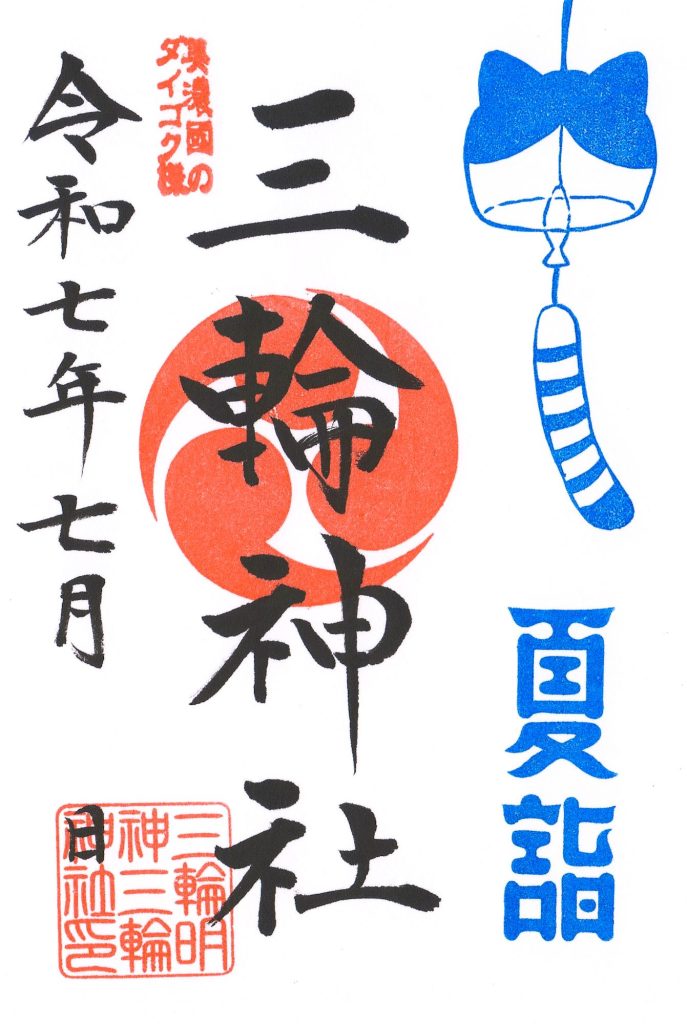 夏詣
三輪神社
美濃國の
ダイコク様
令和七年七月
日
三輪明
神三輪
神社印